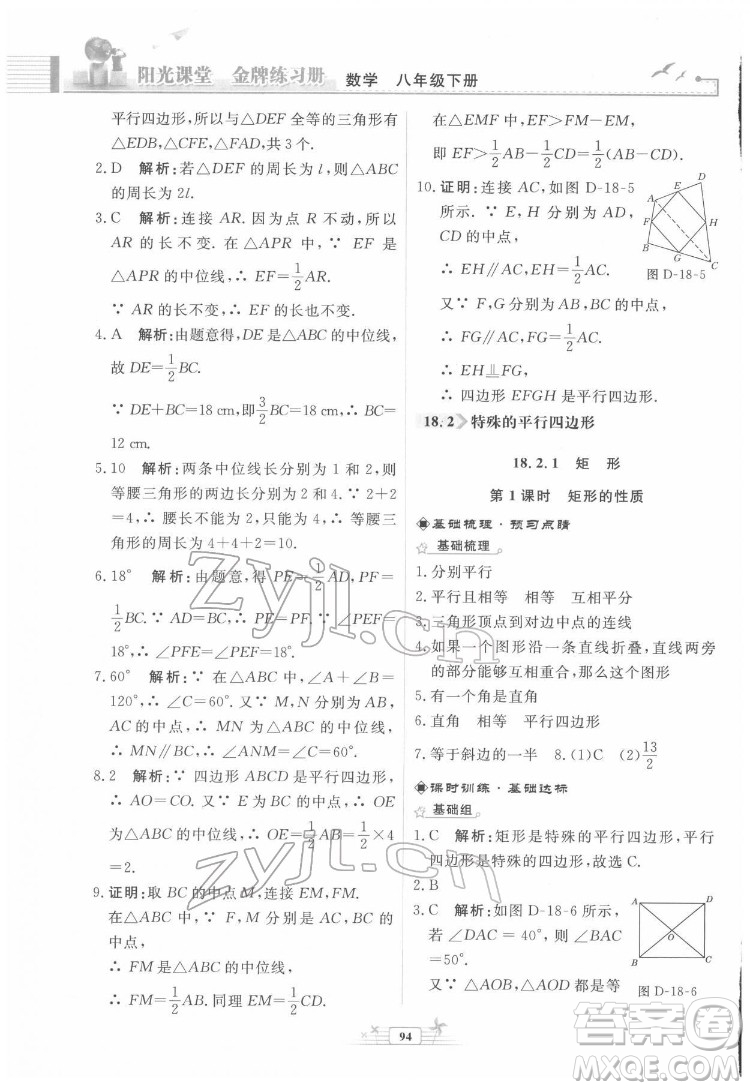 阳光课堂 金牌练习册 数学 八年级下册
平行四边形，所以与△DEF 全等的三角形有
△EDB,△CFE,△FAD,共3个.
2. D 解析:若△DEF 的周长为 l,则△ABC
的周长为 2l.
3. C 解析:连接 AR. 因为点 R 不动,所以
AR 的长不变. 在△APR 中,∵ EF 是
△APR 的中位线,∴ EF=1/2AR.
∵ AR 的长不变,∴ EF 的长也不变.
4. A 解析:由题意得,DE 是△ABC 的中位线,
故 DE=1/2BC.
∵ DE+BC=18 cm,即3/2BC=18 cm,∴ BC=
12 cm.
5. 10 解析:两条中位线长分别为 1 和 2,则
等腰三角形的两边长分别为 2 和 4. ∵ 2+2
=4,∴ 腰长不能为 2,只能为 4,∴ 等腰三
角形的周长为 4+4+2=10.
6. 18° 解析:由题意,得 PE=1/2AD,PF=
1/2BC. ∵ AD=BC,∴ PE=PF. ∵ ∠PEF=
18°,∴ ∠PFE=∠PEF=18°.
7. 60° 解析:∵ 在△ABC 中,∠A+∠B=
120°,∴ ∠C=60°. ∵ M,N 分别为 AB,
AC 的中点,∴ MN 为△ABC 的中位线,
∴ MN∥BC,∴ ∠C=60°.
8. 2 解析:∵ 四边形 ABCD 是平行四边形,
∴ AO=CO. ∵ E 为 AB 的中点,∴ OE
为△ABC 的中位线,∴ OE=1/2AB=1/2×4
=2.
9. 证明:取 BC 的中点 M,连接 EM,FM.
在△ABC 中,∵ F,M 分别是 AC,BC 的
中点,
∴ FM 是△ABC 的中位线,
∴ FM=1/2AB. 同理 EM=1/2CD.
在△EMF 中,EF>FM-EM,
即 EF>1/2AB-1/2CD=1/2(AB-CD).
10. 证明:连接 AC,如图 D-18-5
所示. ∵ E,H 分别为 AD,
CD 的中点,
∴ EH∥AC,EH=1/2AC.
A B C D E F G H
图 D-18-5
又∵ F,G 分别为 AB,BC 的中点,
∴ FG∥AC,FG=1/2AC.
∴ EH⫫FG,
∴ 四边形 EFGH 是平行四边形.
18.2 特殊的平行四边形
18.2.1 矩 形
第 1 课时 矩形的性质
基础梳理·预习点睛
基础梳理
1. 分别平行
2. 平行且相等 相等 相等 互相平分
3. 三角形顶点到对边中点的连线
4. 如果一个图形沿一条直线折叠,直线两旁
的部分能够互相重合,那么这个图形
5. 有一个角是直角
6. 直角 相等 平行四边形
7. 等于斜边的一半 8. (1)C (2)13/2
课时训练·基础达标
基础组
1. C 解析:矩形是特殊的平行四边形,平行
四边形不是特殊的矩形,故选 C.
2. B
3. C 解析:如图 D-18-6 所示,
若∠DAC = 40°,则∠BAC
=50°.
又∵ △AOB,△AOD 都是等
A D O B C
图 D-18-6
94
zyjl.cn
zyjl.cn
答案圈
MXQE.COM